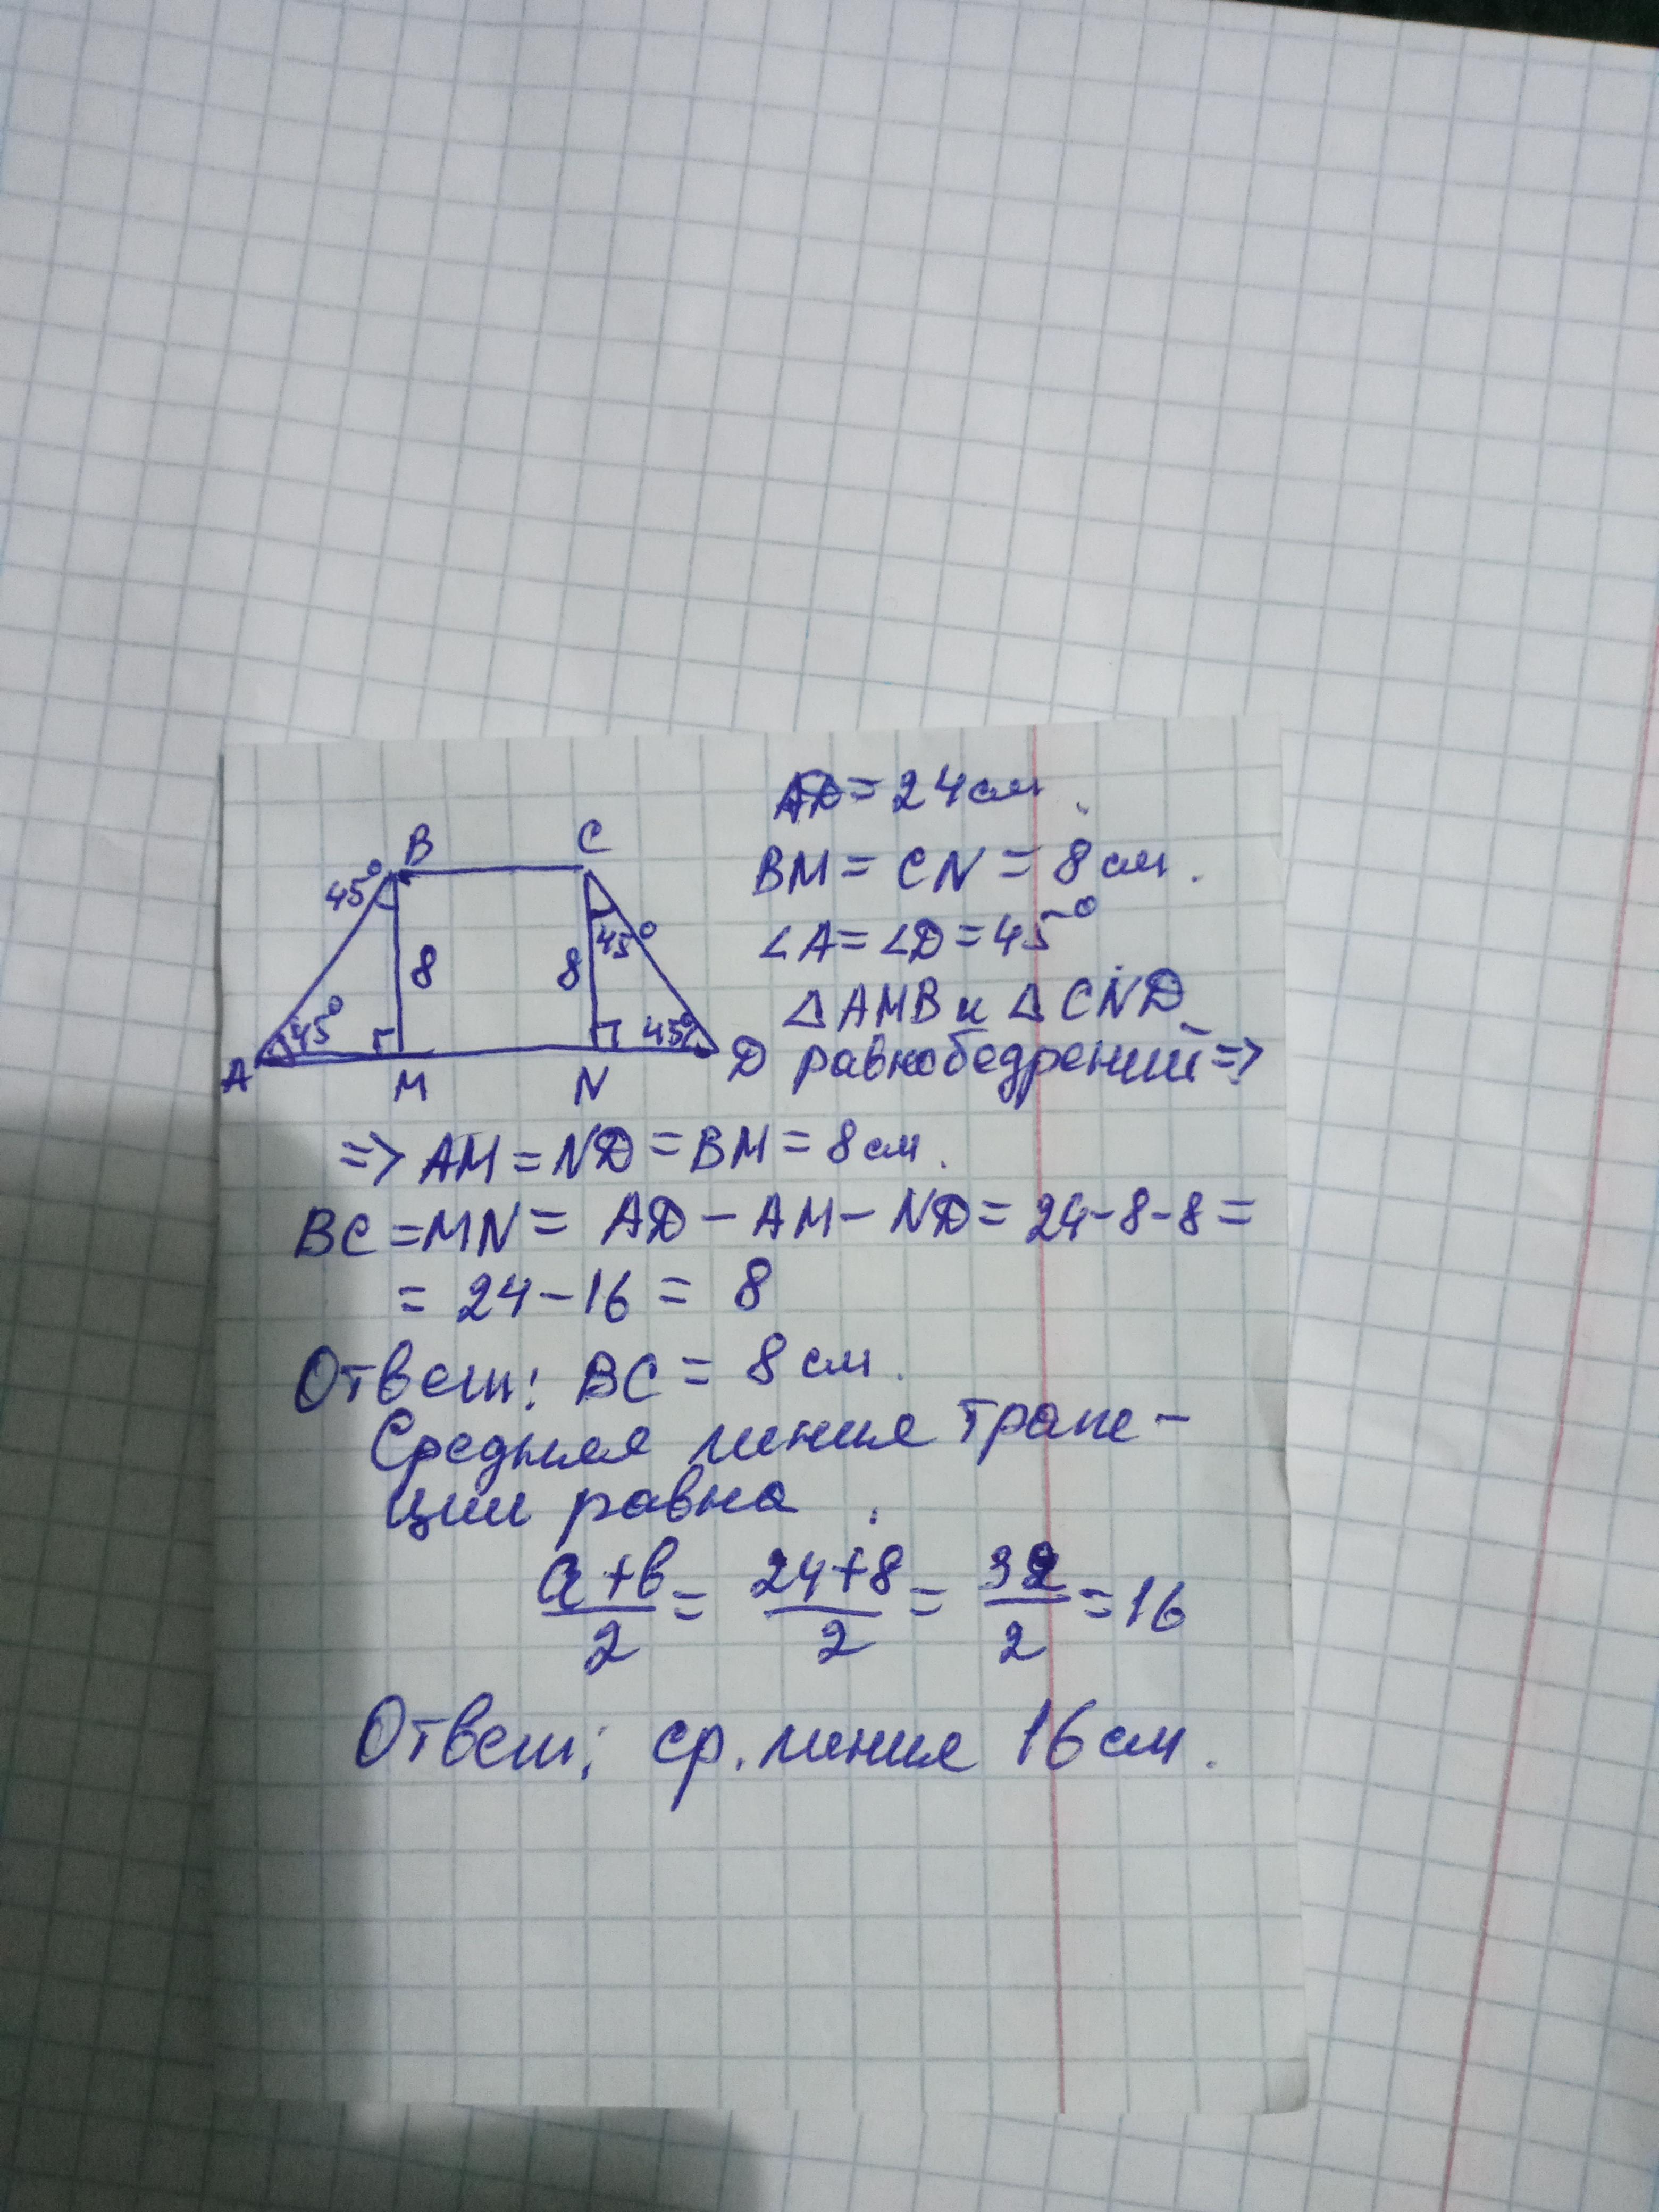 AD = 24 см.
B C
45°
BM = CN = 8 см.
45°
∠A = ∠D = 45°
8 8
45° 45°
△AMB и △CND
A M N D
равнобедренний =>
=> AM = ND = BM = 8 см.
BC = MN = AD - AM - ND = 24 - 8 - 8 =
= 24 - 16 = 8
Ответ: BC = 8 см.
Средняя линия трапе-
ции равна.
a+b/2 = 24+8/2 = 32/2 = 16
Ответ: ср. линия 16 см.